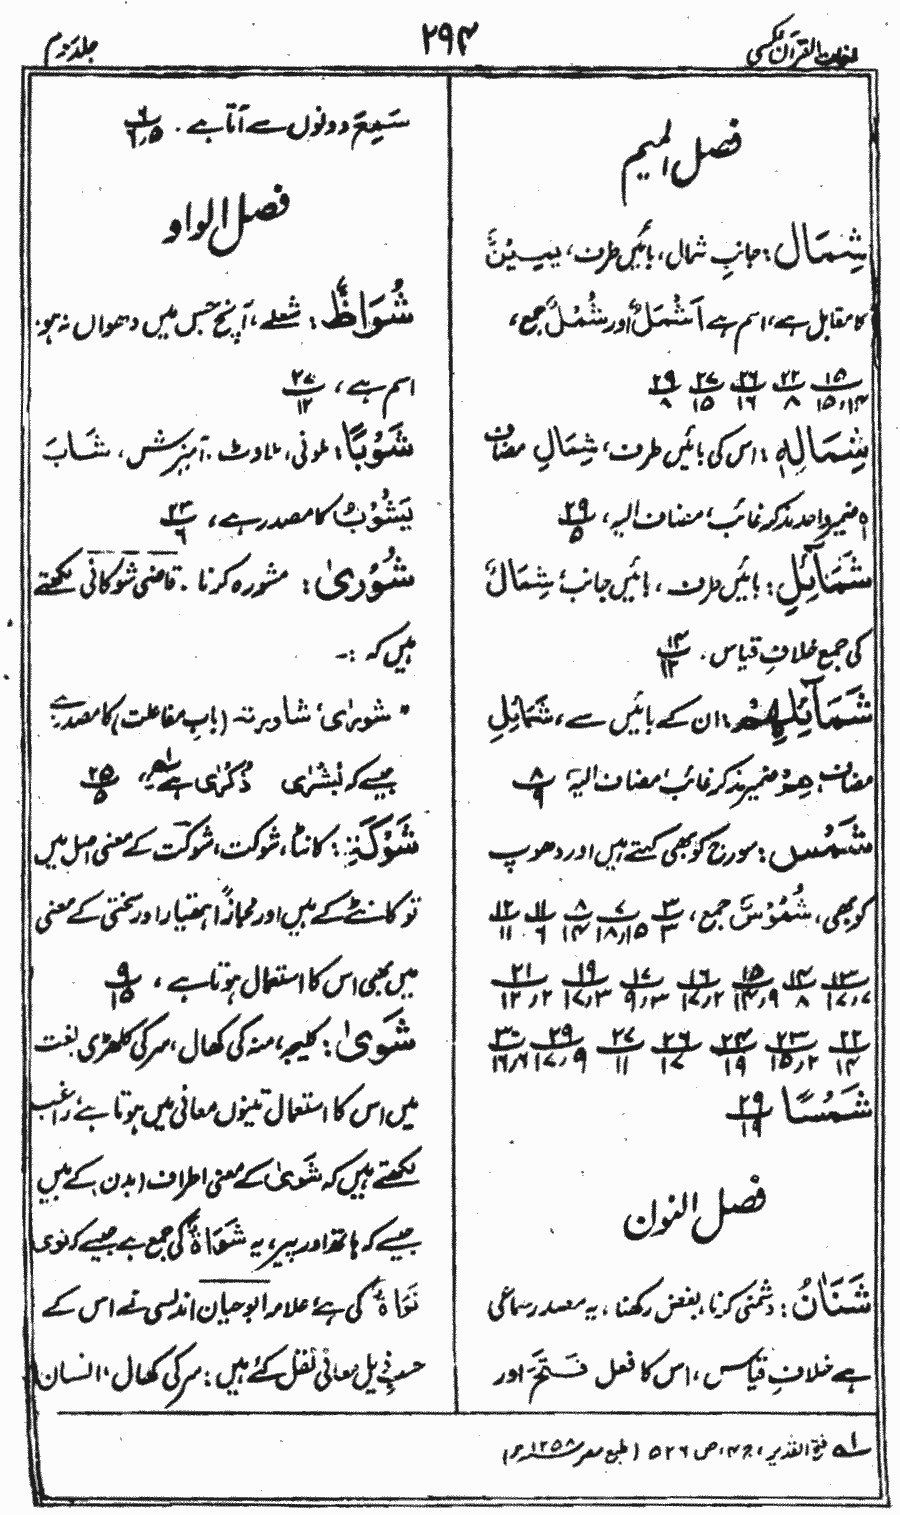 لغات القرآن عکسی
۲۹۴
جلد سوم
فصل المیم
شِمَال : جانبِ شمال، بائیں طرف، یَمِیْنٌ
کا مقابل ہے، اسم ہے اَشْمُلٌ اور شُمُلٌ جمع،
۱۵/۱۴،۱۵ ۲۲/۸ ۲۶/۱۶ ۲۷/۱۵ ۲۹/۸
شِمَالِهٖ : اس کی بائیں طرف، شِمَالِ مضاف
ہٖ ضمیر واحد مذکر غائب، مضاف الیہ، ۲۹/۵
شَمَآئِل : بائیں طرف، بائیں جانب، شِمَالٌ
کی جمع خلافِ قیاس. ۱۴/۱۲
شَمَآئِلِهِمْ : ان کے بائیں سے، شَمَائِلِ
مضاف، هِمْ ضمیر مذکر غائب مضاف الیہ ۸/۹
شَمْس : سورج کو بھی کہتے ہیں اور دھوپ
کو بھی، شُمُوْسٌ جمع، ۳/۳ ۷/۱۵،۱۸ ۸/۱۴ ۱۱/۶ ۱۲/۱۱
۱۳/۷،۱۷ ۱۴/۸ ۱۵/۹،۱۴ ۱۶/۲،۱۷ ۱۷/۳،۹ ۱۹/۳،۱۷ ۲۱/۲،۱۲
۲۲/۱۴ ۲۳/۲،۱۵ ۲۴/۱۹ ۲۶/۱۷ ۲۷/۱۱ ۲۹/۹،۱۷ ۳۰/۶،۱۶
شَمْسًا ۲۹/۱۹
فصل النون
شَنَاٰنُ : دشمنی کرنا، بغض رکھنا، یہ مصدر سماعی
ہے خلافِ قیاس، اس کا فعل فَتَحَ اور
سَمِعَ دونوں سے آتا ہے. ۶/۵،۶
فصل الواو
شُوَاظٌ : شعلے، آنچ جس میں دھواں نہ ہو،
اسم ہے، ۲۷/۱۲
شَوْبًا : ملونی، ملاوٹ. آمیزش، شَابَ
یَشُوْبُ کا مصدر ہے، ۲۳/۶
شُوْرٰی : مشورہ کرنا. قاضی شوکانی لکھتے
ہیں کہ :-
" شورٰی، شاورتہ (باب مفاعلت) کا مصدر ہے
جیسے کہ بُشْرٰی ذُکْرٰی ہے" لہ، ۲۵/۵
شَوْکَۃِ : کانٹا، شوکت، شوکت کے معنی اصل میں
تو کانٹے کے ہیں اور مجازًا ہتھیار اور سختی کے معنی
میں بھی اس کا استعمال ہوتا ہے، ۹/۱۵
شَوٰی : کلیجہ، منہ کی کھال، سر کی کھڑی لغت
میں اس کا استعمال تینوں معانی میں ہوتا ہے، راغب
لکھتے ہیں کہ شَوٰی کے معنی اطراف (بدن) کے ہیں
جیسے کہ ہاتھ اور پیر، یہ شَوَاۃٌ کی جمع ہے جیسے کہ نوی
نَوَاۃٌ کی ہے، علامہ ابو حیان اندلسی نے اس کے
حسبِ ذیل معانی نقل کئے ہیں : سر کی کھال، انسان
لہ فتح القدیر، ج ۴، ص ۵۲۶ (طبع مصر ۱۳۵۸ھ)